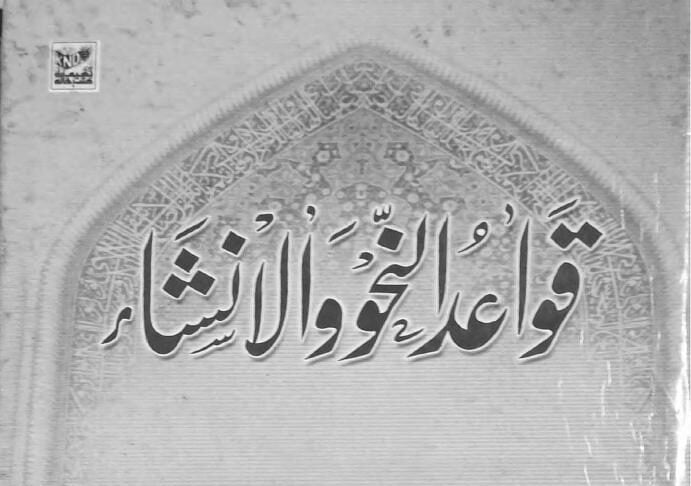 KND
قَوَاعِدُ النَّحْوِ وَالْاِنْشَاء